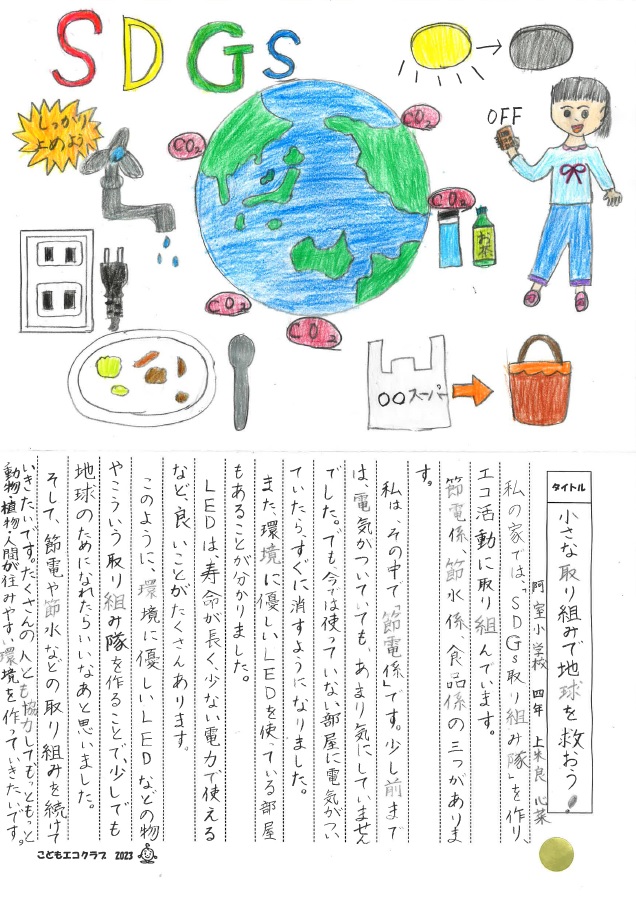 SDGs
しっかり
止めよう
CO2
CO2
CO2
CO2
CO2
OFF
お茶
〇〇スーパー
タイトル
小さな取り組みで地球を救おう!
阿室小学校 四年 上朱良 心菜
私の家では、「SDGs取り組み隊」を作り、
エコ活動に取り組んでいます。
節電係、節水係、食品係の三つがありま
す。
私は、その中で「節電係」です。少し前まで
は、電気がついていても、あまり気にしていません
でした。でも、今では使っていない部屋に電気がつい
ていたら、すぐに消すようになりました。
また、環境に優しいLEDを使っている部屋
もあることが分かりました。
LEDは、寿命が長く、少ない電力で使える
など、良いことがたくさんあります。
このように、環境に優しいLEDなどの物
やこういう取り組み隊を作ることで、少しでも
地球のためになれたらいいなあと思いました。
そして、節電や節水などの取り組みを続けて
いきたいです。たくさんの人とも協力してもっともっと
動物・植物・人間が住みやすい環境を作っていきたいです。
こどもエコクラブ 2023